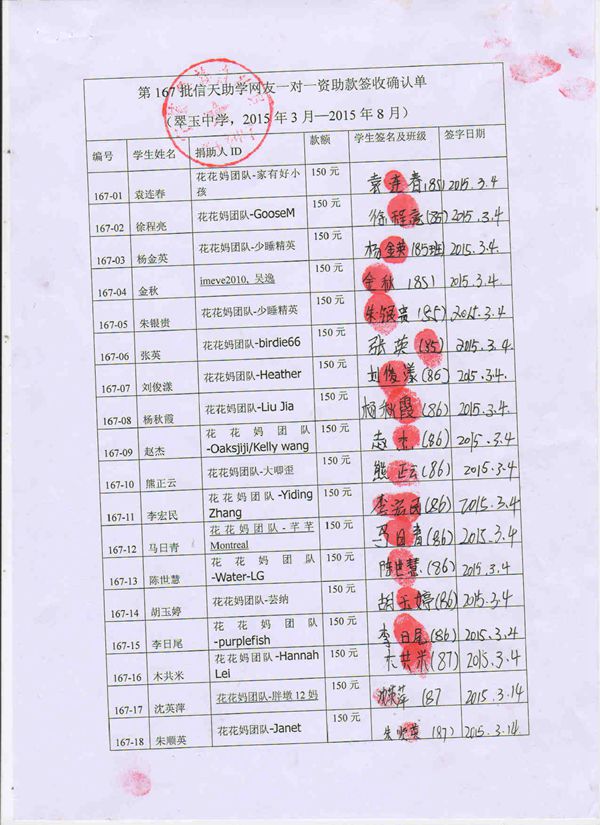 第167批信天助学网友一对一资助款签收确认单
(翠玉中学，2015年3月—2015年8月)
编号 学生姓名 捐助人ID 款额 学生签名及班级 签字日期
167-01 袁连春 花花妈团队-家有好小孩 150元 袁连春(85) 2015.3.4
167-02 徐程亮 花花妈团队-GooseM 150元 徐程亮(85) 2015.3.4
167-03 杨金英 花花妈团队-少睡精英 150元 杨金英(85班) 2015.3.4.
167-04 金秋 imeve2010, 吴逸 150元 金秋(85) 2015.3.4
167-05 朱银贵 花花妈团队-少睡精英 150元 朱银贵(85) 2015.3.4
167-06 张英 花花妈团队-birdie66 150元 张英(85) 2015.3.4
167-07 刘俊漾 花花妈团队-Heather 150元 刘俊漾(86) 2015.3.4
167-08 杨秋霞 花花妈团队-Liu Jia 150元 杨秋霞(86) 2015.3.4.
167-09 赵杰 花花妈团队-Oaksjiji/Kelly wang 150元 赵杰(86) 2015.3.4
167-10 熊正云 花花妈团队-大唧歪 150元 熊正云(86) 2015.3.4
167-11 李宏民 花花妈团队-Yiding Zhang 150元 李宏民(86) 2015.3.4
167-12 马日青 花花妈团队-芊芊Montreal 150元 马日青(86) 2015.3.4
167-13 陈世慧 花花妈团队-Water-LG 150元 陈世慧(86) 2015.3.4
167-14 胡玉婷 花花妈团队-芸纳 150元 胡玉婷(86) 2015.3.4
167-15 李日尾 花花妈团队-purplefish 150元 李日尾(86) 2015.3.4
167-16 木共米 花花妈团队-Hannah Lei 150元 木共米(87) 2015.3.4
167-17 沈英萍 花花妈团队-胖墩12妈 150元 沈英萍(87 2015.3.14
167-18 朱顺英 花花妈团队-Janet 150元 朱顺英(87) 2015.3.14.